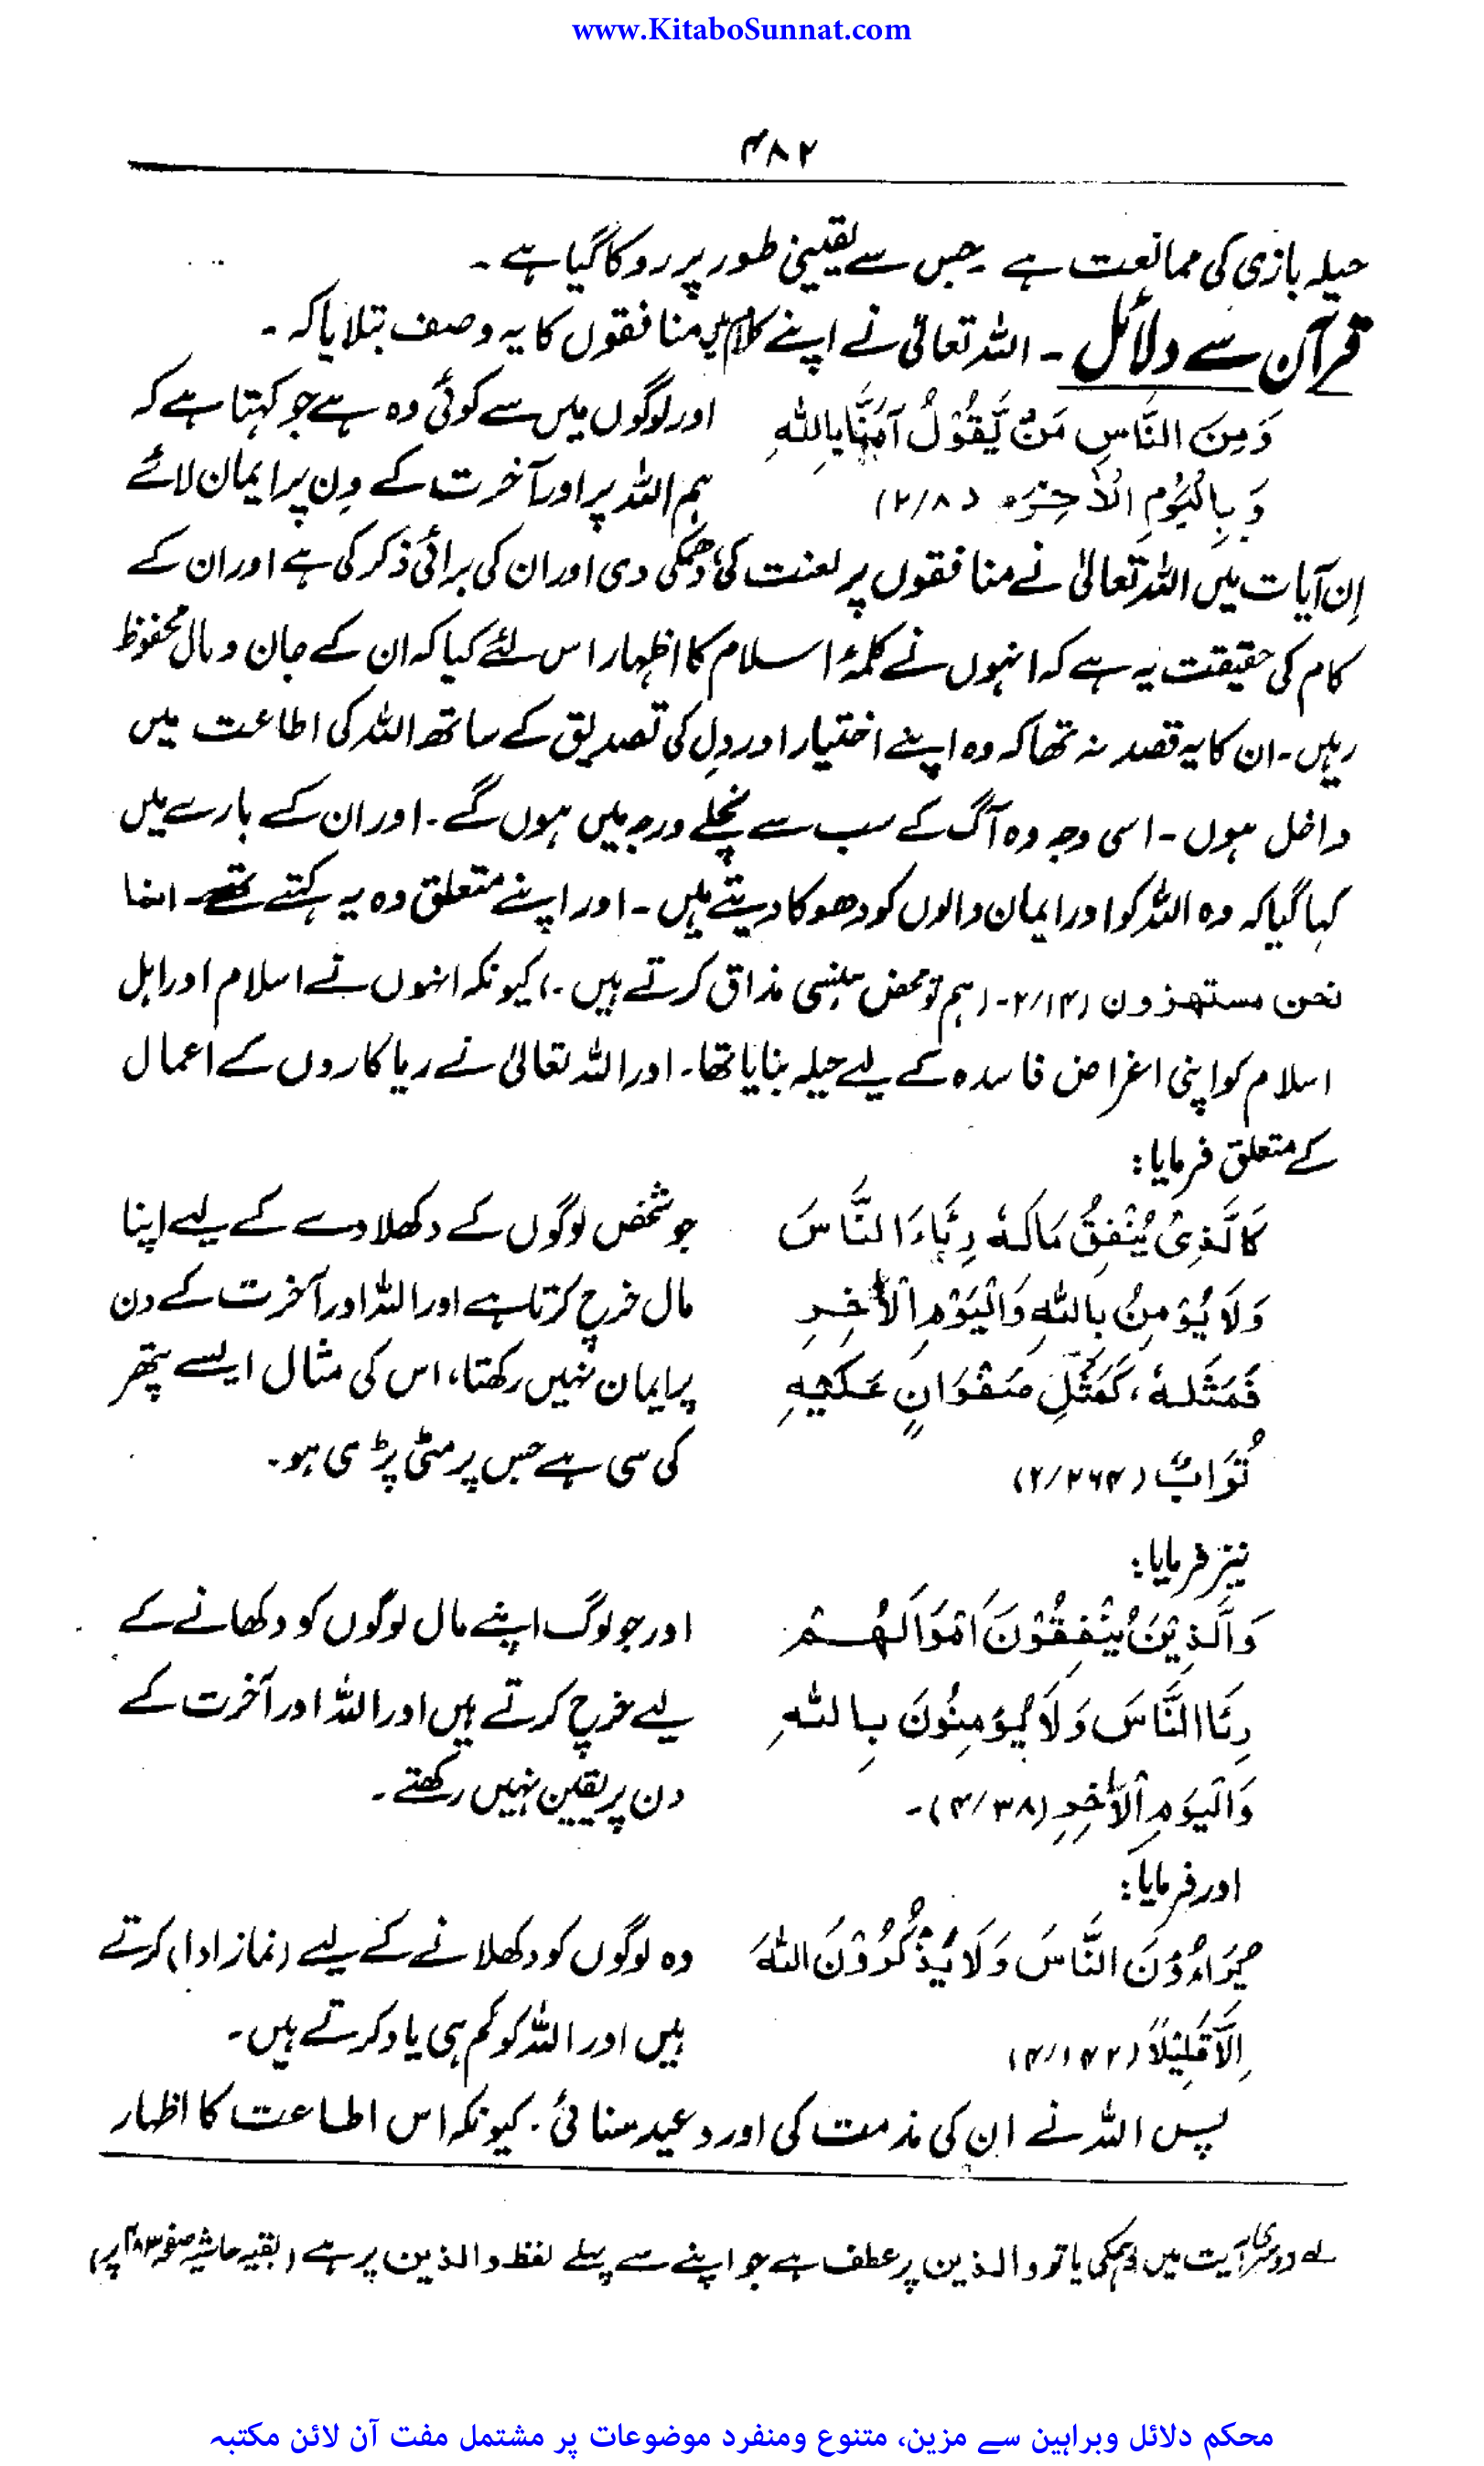 www.KitaboSunnat.com
۴۸۲
حیلہ بازی کی ممانعت ہے ۔ جس سے یقینی طور پر روکا گیا ہے ۔
قرآن سے دلائل ۔ اللہ تعالیٰ نے اپنے کلام میں منافقوں کا یہ وصف بتلایا کہ ۔
وَمِنَ النَّاسِ مَنْ یَّقُوْلُ آمَنَّا بِاللّٰہِ اور لوگوں میں سے کوئی وہ ہے جو کہتا ہے کہ
وَبِالْیَوْمِ الْاٰخِرِ ہ (۲/۸) ہم اللہ پر اور آخرت کے دِن پر ایمان لائے
اِن آیات میں اللہ تعالیٰ نے منافقوں پر لعنت کی، دھمکی دی اور ان کی برائی ذکر کی ہے اور ان کے
کام کی حقیقت یہ ہے کہ انہوں نے کلمۂ اسلام کا اظہار اس لئے کیا کہ ان کے جان و مال محفوظ
رہیں ۔ ان کا یہ قصد نہ تھا کہ وہ اپنے اختیار اور دِل کی تصدیق کے ساتھ اللہ کی اطاعت میں
داخل ہوں ۔ اسی وجہ وہ آگ کے سب سے نچلے درجہ میں ہوں گے ۔ اور ان کے بارے میں
کہا گیا کہ وہ اللہ کو اور ایمان والوں کو دھوکا دیتے ہیں ۔ اور اپنے متعلق وہ یہ کہتے تھے ۔ انما
نحن مستھزون (۲/۱۴ ۔ (ہم تو محض ہنسی مذاق کرتے ہیں ۔) کیونکہ انہوں نے اسلام اور اہل
اسلام کو اپنی اغراض فاسدہ کے لیے حیلہ بنایا تھا ۔ اور اللہ تعالیٰ نے ریاکاروں کے اعمال
کے متعلق فرمایا :
کَالَّذِیْ یُنْفِقُ مَالَہٗ رِئَاءَ النَّاسَ جو شخص لوگوں کے دکھلاوے کے لیے اپنا
وَلَا یُؤْمِنُ بِاللّٰہِ وَالْیَوْمِ الْاٰخِرِ مال خرچ کرتا ہے اور اللہ اور آخرت کے دن
فَمَثَلہٗ، کَمَثَلِ صَفْوَانٍ عَلَیْہِ پر ایمان نہیں رکھتا، اس کی مثال ایسے پتھر
تُرَابٌ (۲/۲۶۴) کی سی ہے جس پر مٹی پڑی ہو ۔
نیز فرمایا :
وَالَّذِیْنَ یُنْفِقُوْنَ اَمْوَالَہُمْ اور جو لوگ اپنے مال لوگوں کو دکھانے کے
رِئَاالنَّاسَ وَلَا یُؤمِنُونَ بِاللّٰہِ لیے خرچ کرتے ہیں اور اللہ اور آخرت کے
وَالْیَوَمِ الْاٰخِرِ (۴/۳۸) ۔ دن پر یقین نہیں رکھتے ۔
اور فرمایا :
یُرَاءُوْنَ النَّاسَ وَلَا یَذْکُرُوْنَ اللّٰہَ وہ لوگوں کو دکھلانے کے لیے (نماز ادا) کرتے
اِلَّا قَلِیْلًا (۴/۱۴۲) ہیں اور اللہ کو کم ہی یاد کرتے ہیں ۔
پس اللہ نے ان کی مذمت کی اور وعید سنائی ۔ کیونکہ اس اطاعت کا اظہار
لے دوسری آیت میں دھمکی یا تو والذین پر عطف ہے جو اپنے سے پہلے لفظ والذین پر ہے (بقیہ حاشیہ صفحہ ۴۸۳ پر)
محکم دلائل وبراہین سے مزین، متنوع ومنفرد موضوعات پر مشتمل مفت آن لائن مکتبہ